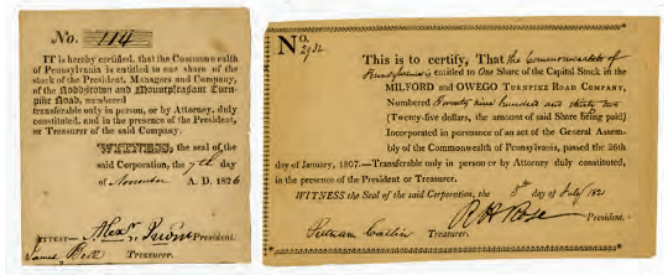 No. 114
IT is hereby certified, that the Commonwealth
of Pennsylvania is entitled to one share of the
stock of the President, Managers and Company,
of the Robbstown and Mountpleasant Turn-
pike Road, numbered
transferable only in person, or by Attorney, duly
constituted, and in the presence of the President,
or Treasurer of the said Company.
WITNESS, the seal of the
said Corporation, the 7th day
of November A. D. 1826
ATTEST— President.
James Bell Treasurer.
No.
2932
This is to certify, That the Commonwealth of
Pennsylvania is entitled to One Share of the Capital Stock in the
MILFORD and OWEGO TURNPIKE ROAD COMPANY,
Numbered Twenty nine hundred and thirty two
(Twenty-five dollars, the amount of said Share being paid)
Incorporated in pursuance of an act of the General Assem-
bly of the Commonwealth of Pennsylvania, passed the 26th
day of January, 1807.—Transferable only in person or by Attorney duly constituted,
in the presence of the President or Treasurer.
WITNESS the Seal of the said Corporation, the 8th day of July 1821
R H Rose President.
Putnam Catlin Treasurer.